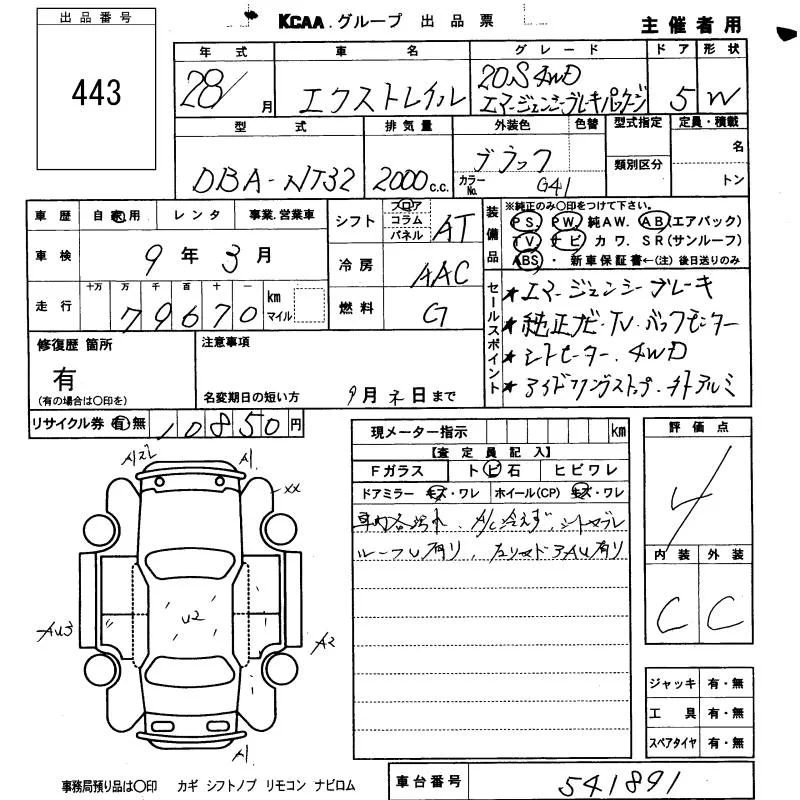 出品番号
443
KCAA.グループ 出品票
主催者用
年式 車名 グレード ドア 形状
28/ 月 エクストレイル 20S 4WD エマージェンシーブレーキパッケージ 5 W
型式 排気量 外装色 色替 型式指定 定員・積載
DBA-NT32 2000c.c. ブラック
カラーNo. G41
類別区分
名
トン
車歴 自家用 レンタ 事業.営業車
車検 9年3月
走行 十万 万 千 百 十 一
79670 km マイル
シフト フロア コラム パネル AT
冷房 AAC
燃料 G
装備品
※純正のみ○印をつけて下さい。
PS. PW. 純AW. AB(エアバック)
TV. ナビ カワ. SR(サンルーフ)
ABS・ 新車保証書←(注)後日送りのみ
セールスポイント
★エマージェンシーブレーキ
★純正ナビ・TV.バックモニター
★シートヒーター.4WD
★アイドリングストップ.純正アルミ
修復歴 箇所
有
(有の場合は○印を)
注意事項
名変期日の短い方 9月末日まで
リサイクル券 有 無 10850円
現メーター指示 km
【査定員記入】
Fガラス トビ石 ヒビワレ
ドアミラー キズ・ワレ ホイール(CP) キズ・ワレ
車内各汚れ、A/C冷えず、シートスレ
ルーフU有り、左リヤドアAU有り
評価点
4
内装 外装
C C
A2L
A1
XX
U2
AU3
A2
A1
ジャッキ 有・無
工具 有・無
スペアタイヤ 有・無
事務局預り品は○印 カギ シフトノブ リモコン ナビロム
車台番号 541891